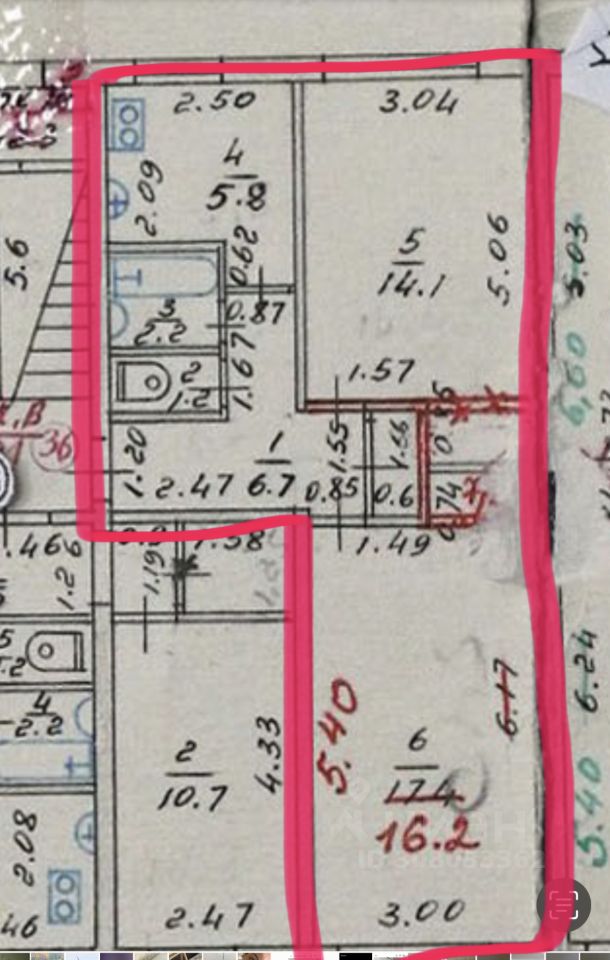 2.50
3.04
4
5.8
2.09
0.62
5
14.1
5.06
5.03
6,60
5.6
3
2.2
0.87
1.67
2
1.2
1.57
36
1.20
1
6.7
2.47
1.55
0.85
1.56
0.6
74
1.49
.466
1.2
1.19
1.38
4
2.2
2.08
46
2
10.7
4.33
2.47
5.40
6
17.4
16.2
6.17
6.24
5.40
3.00